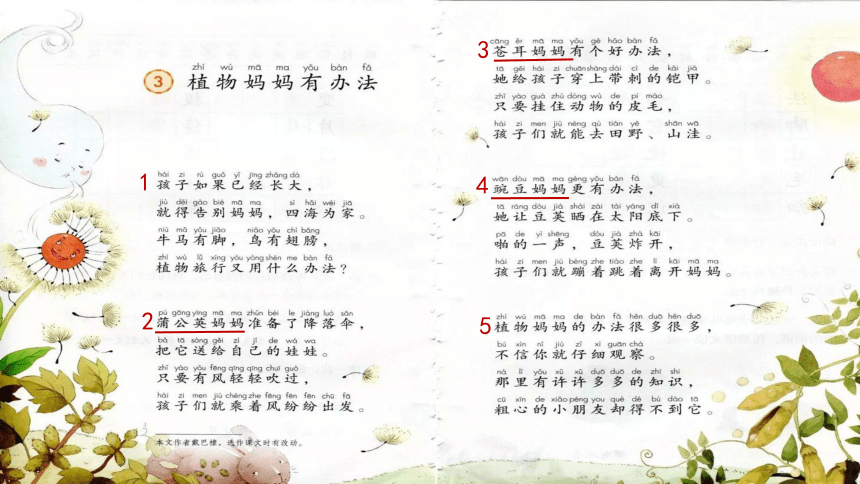 zhí wù mā ma yǒu bàn fǎ
3 植物妈妈有办法
hái zi rú guǒ yǐ jīng zhǎng dà
1 孩子如果已经长大，
jiù děi gào bié mā ma sì hǎi wéi jiā
就得告别妈妈，四海为家。
niú mǎ yǒu jiǎo niǎo yǒu chì bǎng
牛马有脚，鸟有翅膀，
zhí wù lǚ xíng yòu yòng shén me bàn fǎ
植物旅行又用什么办法？
pú gōng yīng mā ma zhǔn bèi le jiàng luò sǎn
2 蒲公英妈妈准备了降落伞，
bǎ tā sòng gěi zì jǐ de wá wa
把它送给自己的娃娃。
zhǐ yào yǒu fēng qīng qīng chuī guò
只要有风轻轻吹过，
hái zi men jiù chéng zhe fēng fēn fēn chū fā
孩子们就乘着风纷纷出发。
本文作者戴巴棣，选作课文时有改动。
cāng ěr mā ma yǒu gè hǎo bàn fǎ
3 苍耳妈妈有个好办法，
tā gěi hái zi chuān shàng dài cì de kǎi jiǎ
她给孩子穿上带刺的铠甲。
zhǐ yào guà zhù dòng wù de pí máo
只要挂住动物的皮毛，
hái zi men jiù néng qù tián yě shān wā
孩子们就能去田野、山洼。
wān dòu mā ma gèng yǒu bàn fǎ
4 豌豆妈妈更有办法，
tā ràng dòu jiá shài zài tài yáng dǐ xià
她让豆荚晒在太阳底下。
pā de yì shēng dòu jiá zhà kāi
啪的一声，豆荚炸开，
hái zi men jiù bèng zhe tiào zhe lí kāi mā ma
孩子们就蹦着跳着离开妈妈。
zhí wù mā ma de bàn fǎ hěn duō hěn duō
5 植物妈妈的办法很多很多，
bú xìn nǐ jiù zǐ xì guān chá
不信你就仔细观察。
nà lǐ yǒu xǔ xǔ duō duō de zhī shi
那里有许许多多的知识，
cū xīn de xiǎo péng you què dé bú dào tā
粗心的小朋友却得不到它。